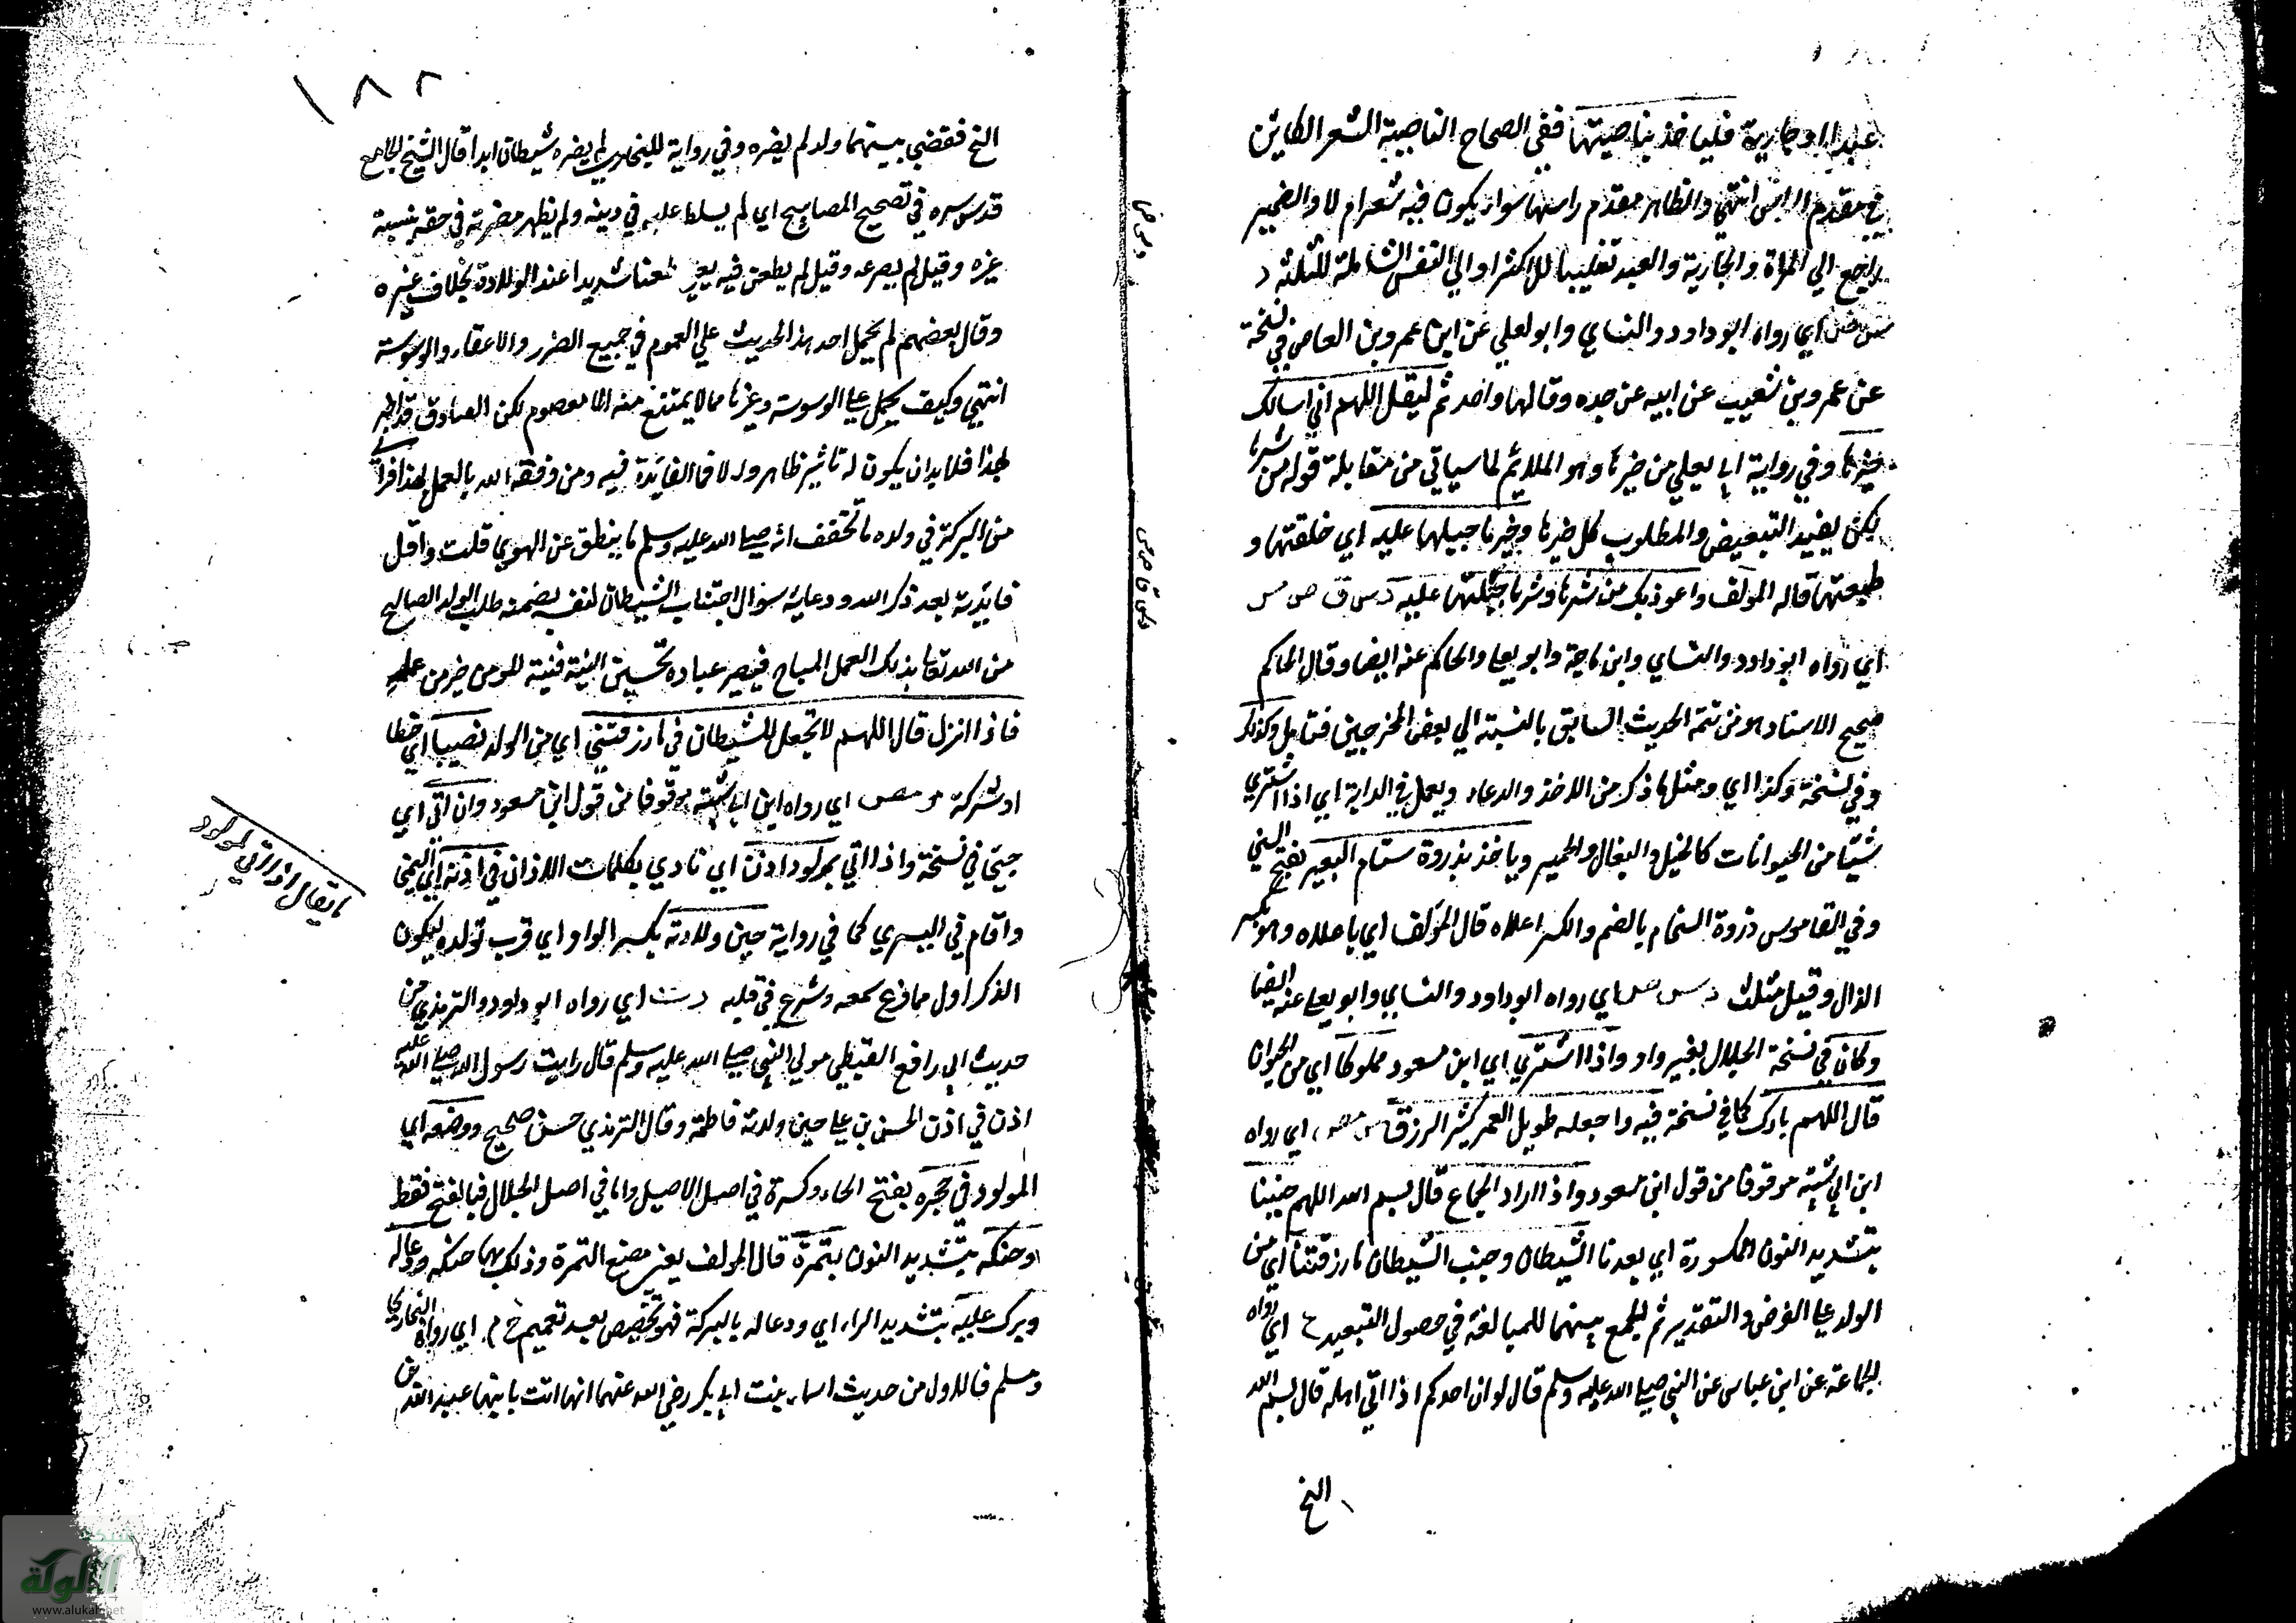 عبدا او جارية فلياخذ بناصيتها ففي الصحاح الناصية الشعر الكائن
في مقدم الراس انتهي والظاهر مقدم راسها سواء يكون فيه شعر ام لا والضمير
راجع الي المراة والجارية والعبد تغليبا للاكثر او الي النفس الشاملة للثلثة د
س ص اي رواه ابو داود والنساي وابو يعلي عن ابن عمرو بن العاص في نسخة
عن عمرو بن شعيب عن ابيه عن جده وقالها واحد ثم ليقل اللهم اني اسالك
خيرها وفي رواية ابي يعلي من خيرها وهو الملائم لما سياتي من مقابلة قوله من شرها
لكن يفيد التبعيض والمطلوب كل خيرها وخير ما جبلها عليه اي خلقتها و
طبيعتها قاله المؤلف واعوذ بك من شرها وشر ما جبلتها عليه د س ق ص مس
اي رواه ابو داود والنساي وابن ماجة وابو يعلي والحاكم عنه ايضا وقال الحاكم
صحيح الاسناد هو من تتمة الحديث السابق بالنسبة الي بعض المخرجين فتامل وكذلك
وفي نسخة وكذا اي ومثل ما ذكر من الاخذ والدعاء ويعمل في الدابة اي اذا اشتري
شيئا من الحيوانات كالخيل والبغال والحمير وياخذ بذروة سنام البعير بفتح السين
وفي القاموس ذروة السنام بالضم والكسر اعلاه قال المؤلف اي باعلاه وهو بكسر
الذال وقيل مثلث د س ص اي رواه ابو داود والنساي وابو يعلي عنه ايضا
وكان في نسخة الجلال بغير واو واذا اشتري اي ابن مسعود مملوكا اي من الحيوان
قال اللهم بارك كما في نسخة فيه واجعله طويل العمر كثير الرزق مو مص اي رواه
ابن ابي شيبة موقوفا من قول ابن مسعود واذا اراد الجماع قال بسم الله اللهم جنبنا
بتشديد النون المكسورة اي بعدنا الشيطان وجنب الشيطان ما رزقتنا اي من
الولد علي الفرض والتقدير ثم الجمع بينهما للمبالغة في حصول التبعيد ع اي رواه
الجماعة عن ابن عباس عن النبي صلي الله عليه وسلم قال لو ان احدكم اذا اتي اهله قال بسم الله
الخ
١٨٢
الخ فقضي بينهما ولد لم يضره وفي رواية للبخاري لم يضره شيطان ابدا قال الشيخ الجامع
قدس سره في تصحيح المصابيح اي لم يسلط عليه في دينه ولم يظهر مضرته في حقه بنسبة
غيره وقيل لم يصرعه وقيل لم يطعن فيه يعني طعنا شديدا عند الولادة بخلاف غيره
وقال بعضهم لم يحمل احد هذا الحديث علي العموم في جميع الضرر والاغواء والوسوسة
انتهي وكيف يحمل علي الوسوسة وغيرها مما لا يمتنع منه الا معصوم لكن الصادق قد اخبر
بهذا فلا بد ان يكون له تاثير ظاهر والا فما الفائدة فيه ومن وفقه الله بالعمل بهذا فراي
من البركة في ولده ما تحقق انه صلي الله عليه وسلم ما ينطق عن الهوي قلت واقل
فايدته بعد ذكر الله ودعائه سؤال اجتناب الشيطان لنفسه تضمنه طلب الولد الصالح
من الله تعالي بذلك العمل المباح فيصير عباده بتحسين النية فنية المؤمن خير من عمله
فاذا انزل قال اللهم لا تجعل للشيطان في ما رزقتني اي من الولد نصيبا اي حظا
او شركة مو مص اي رواه ابن ابي شيبة موقوفا من قول ابن مسعود وان اتي اي
جيئ في نسخة واذا اتي بمولود اذن اي نادي بكلمات الاذان في اذنه اي اليمني
واقام في اليسري كما في رواية حين ولادته بكسر الواو اي قرب تولده ليكون
الذكر اول ما قرع سمعه وشرع في قلبه د ت اي رواه ابو داود والترمذي من
حديث ابي رافع القبطي مولي النبي صلي الله عليه وسلم قال رايت رسول الله صلي الله عليه
اذن في اذن الحسن بن علي حين ولدته فاطمة وقال الترمذي حسن صحيح ووضعه اي
المولود في حجره بفتح الحاء وكسره في اصل الاصيل واما في اصل الجلال فبالفتح فقط
وحنكه بتشديد النون بتمرة قال المؤلف يعني مضغ التمرة وذلك بها حنكه ودعا له
وبرك عليه بتشديد الراء اي ودعا له بالبركة فهو تخصيص بعد تعميم خ م اي رواه البخاري
ومسلم فالاول من حديث اسماء بنت ابي بكر رضي الله عنهما انها اتت بابنها عبد الله بن
ما يقال اذا اتي بمولود
الألوكة
www.alukah.net